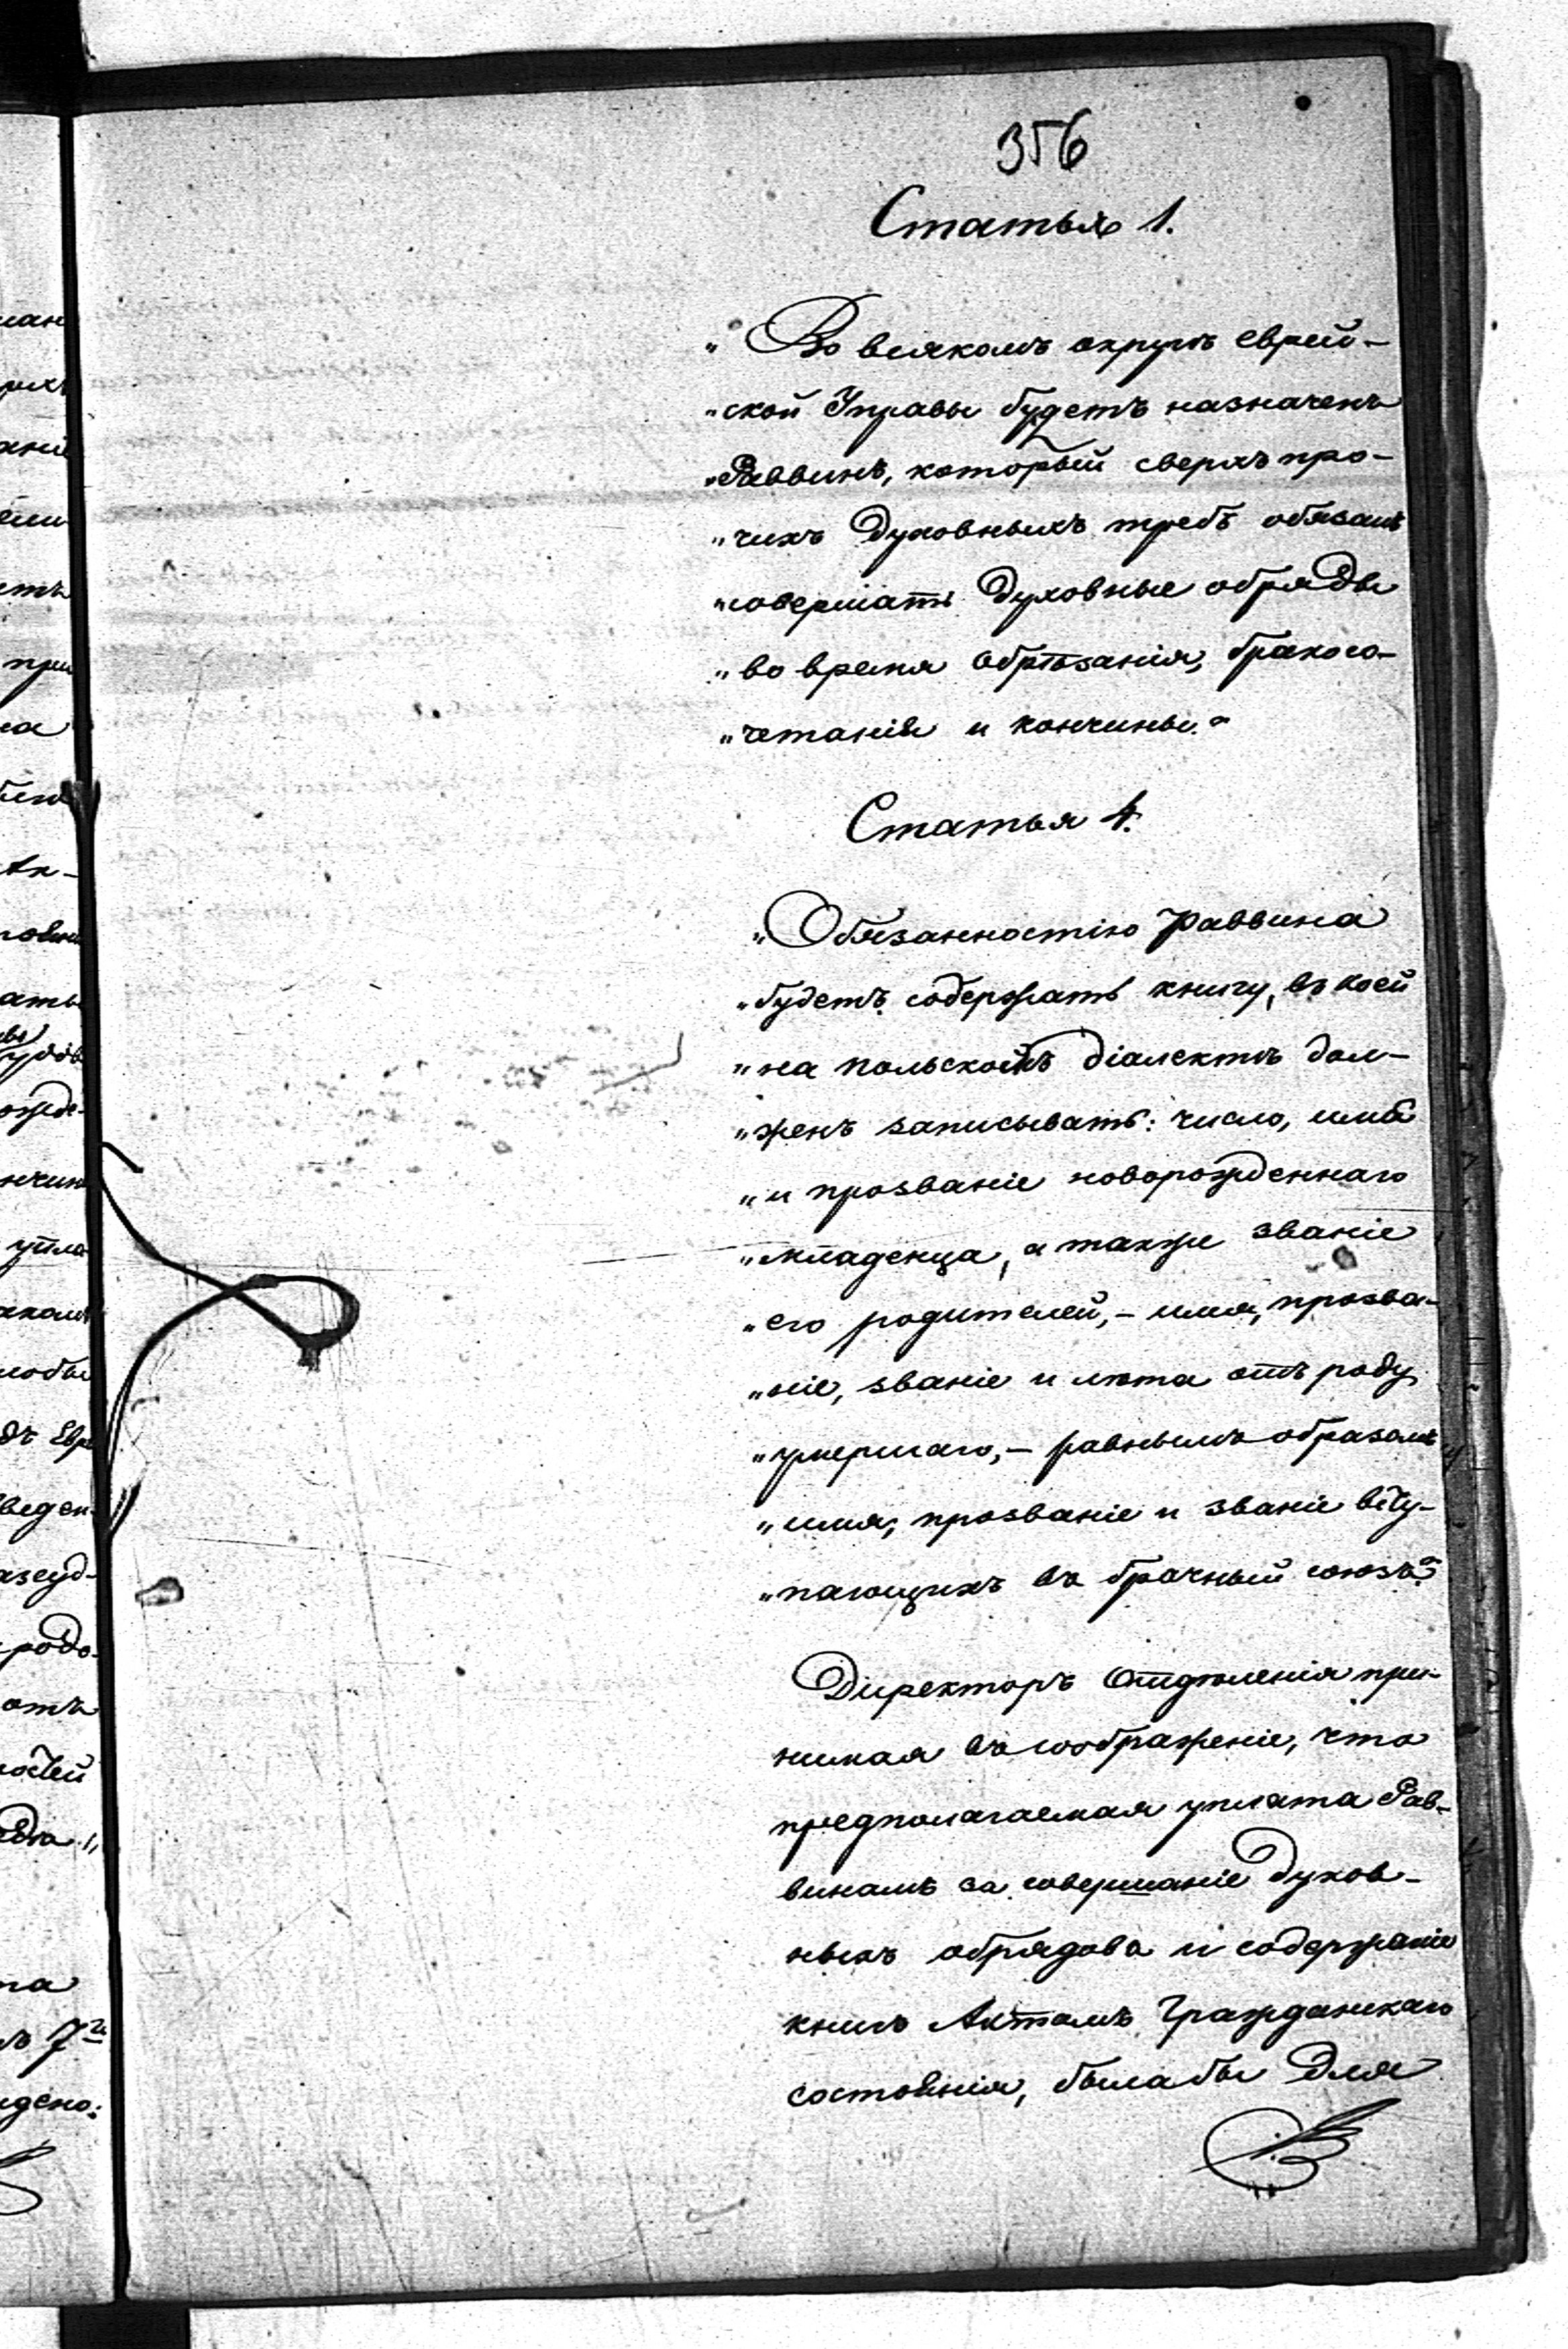 356
Статья 1.
„Во всякомъ округѣ еврей-
„ской Управы будетъ назначенъ
„Раввинъ, который сверхъ про-
„чихъ Духовныхъ требъ обязанъ
„совершать Духовные обряды
„во время обрѣзанія, бракосо-
„четанія и кончины.“
Статья 4.
„Обязанностію Раввина
„будетъ содержать книгу, въ коей
„на польскомъ діалектѣ дол-
„женъ записывать: число, имя
„и прозваніе новорожденнаго
„младенца, а также званіе
„его родителей, – имя, прозва-
„ніе, званіе и лѣта отъ роду
„умершаго, – равнымъ образомъ
„имя, прозваніе и званіе всту-
„пающихъ въ брачный союзъ.“
Директоръ Отдѣленія при-
нимая въ соображеніе, что
предполагаемая уплата Рав-
винамъ за совершаніе Духов-
ныхъ обрядовъ и содержаніе
книгъ Актамъ Гражданскаго
состоянія, была бы для